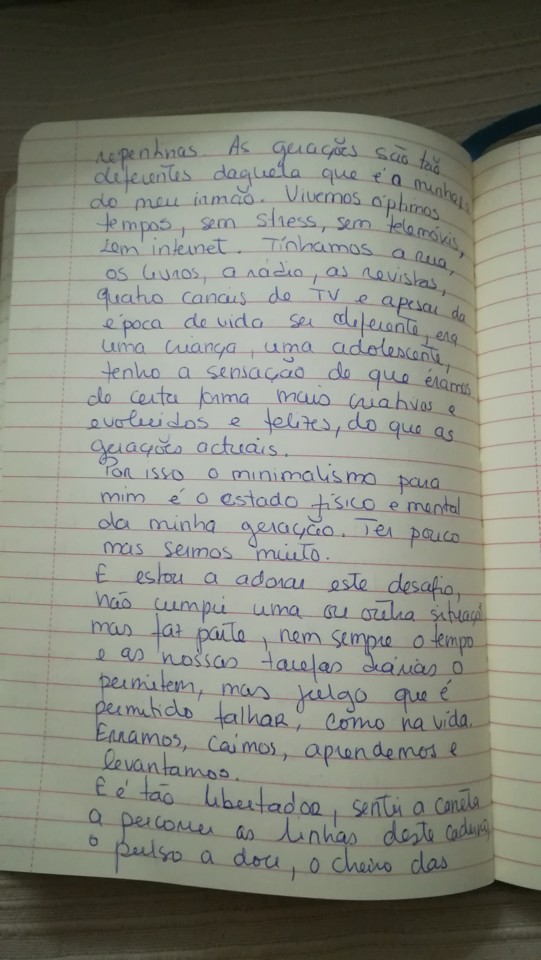 repentinas. As gerações são tão
diferentes daquela que é a minha e
do meu irmão. Vivemos óptimos
tempos, sem stress, sem telemóveis,
sem internet. Tínhamos a rua,
os livros, a rádio, as revistas,
quatro canais de TV e apesar da
época de vida ser diferente, era
uma criança, uma adolescente,
tenho a sensação de que éramos
de certa forma mais criativos e
evoluídos e felizes, do que as
gerações actuais.
Por isso o minimalismo para
mim é o estado físico e mental
da minha geração. Ter pouco
mas sermos muito.
E estou a adorar este desafio,
não cumpri uma ou outra situação
mas faz parte, nem sempre o tempo
e as nossas tarefas diárias o
permitem, mas julgo que é
permitido falhar, como na vida.
Erramos, caímos, aprendemos e
levantamos.
E é tão libertador, sentir a caneta
a percorrer as linhas deste caderno,
o pulso a doer, o cheiro das